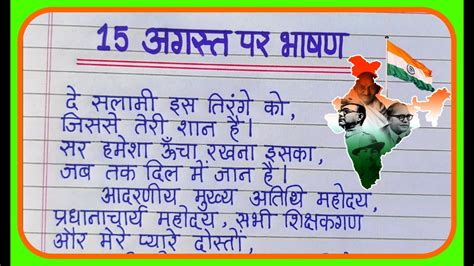 15 अगस्त पर भाषण
दे सलामी इस तिरंगे को,
जिससे तेरी शान है।
सर हमेशा ऊँचा रखना इसका,
जब तक दिल में जान है।
आदरणीय मुख्य अतिथि महोदय,
प्रधानाचार्य महोदय, सभी शिक्षकगण
और मेरे प्यारे दोस्तों,